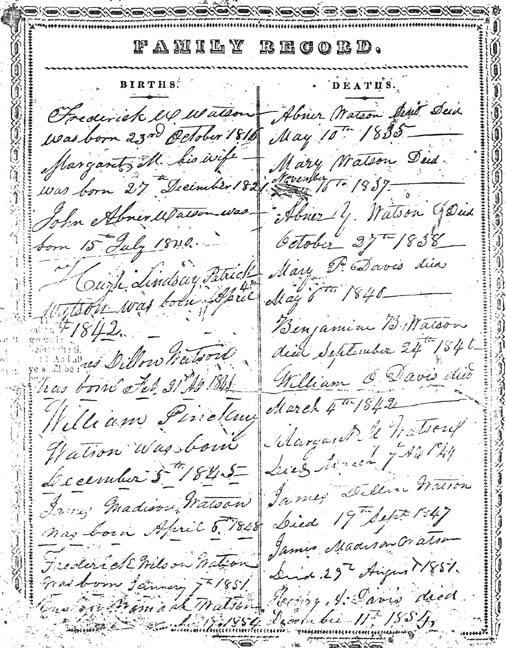 FAMILY RECORD.
BIRTHS.
Frederick W Watson
was born 23rd October 1816
Margaret M. his wife
was born 27th December 1821
John Abner Watson was
born 15th July 1840.
Hugh Lindsay Patrick
Watson was born April 4th
1842.
Dillon Watson
was born Feb 21st
William Pinckney
Watson was born
December 5th 1845
James Madison Watson
was born April 6th 1848
Frederick Wilson Watson
was born January 7th 1851
Watson
1854
DEATHS.
Abner Watson Died
May 10th 1835
Mary Watson Died
November 16th 1837
Abner Y. Watson Died
October 27th 1838
Mary P. Davis died
May 6th 1840
Benjamine B. Watson
died September 24th
William O Davis died
March 4th 1842
Margaret Watson
Died March 7th
James Dillon Watson
Died 19th Sept 1847
James Madison Watson
Died 29th August 1851
Henry A. Davis died
December 11th 1854